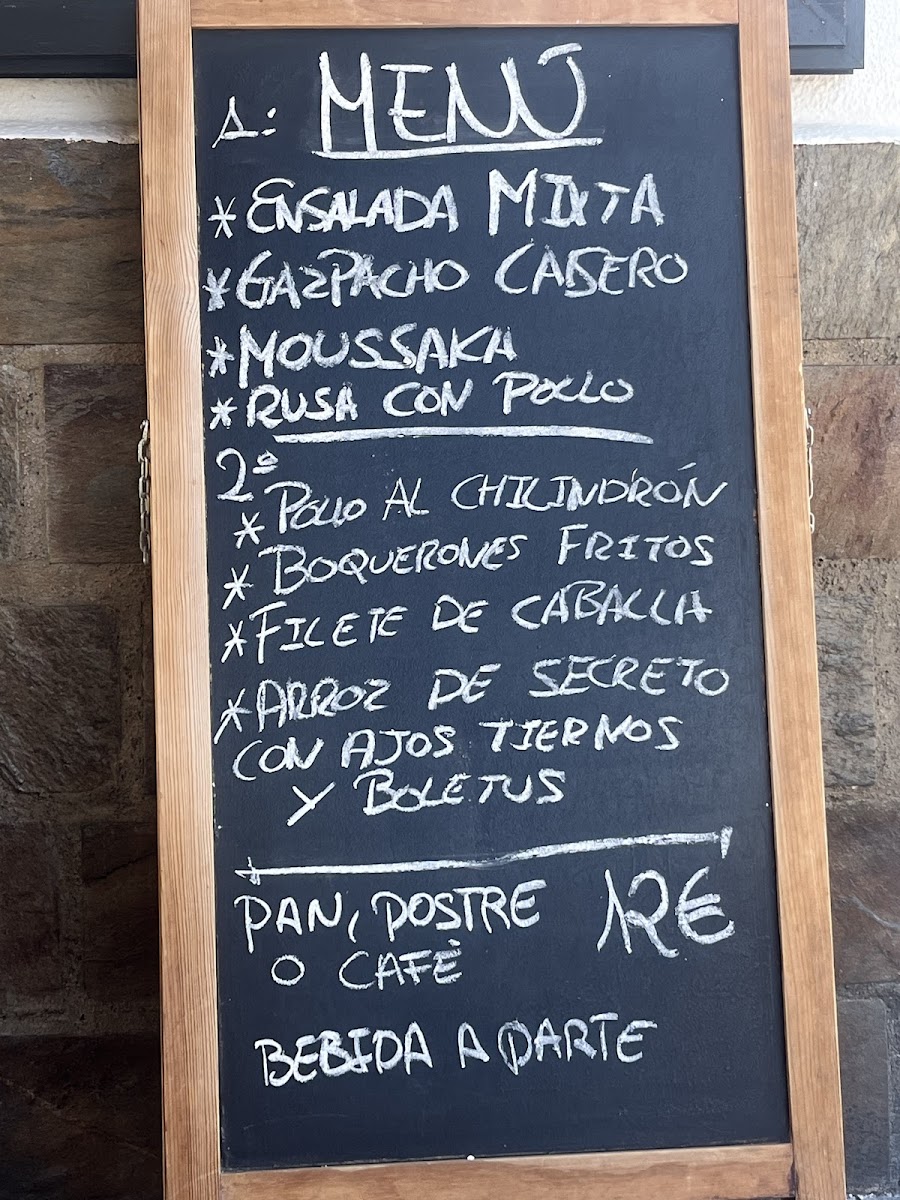 MENÚ
1:
* ENSALADA MIXTA
* GAZPACHO CASERO
* MOUSSAKA
* RUSA CON POLLO
2º
* POLLO AL CHILINDRÓN
* BOQUERONES FRITOS
* FILETE DE CABALLA
* ARROZ DE SECRETO
CON AJOS TIERNOS
Y BOLETUS
PAN, POSTRE 12€
O CAFÉ
BEBIDA APARTE